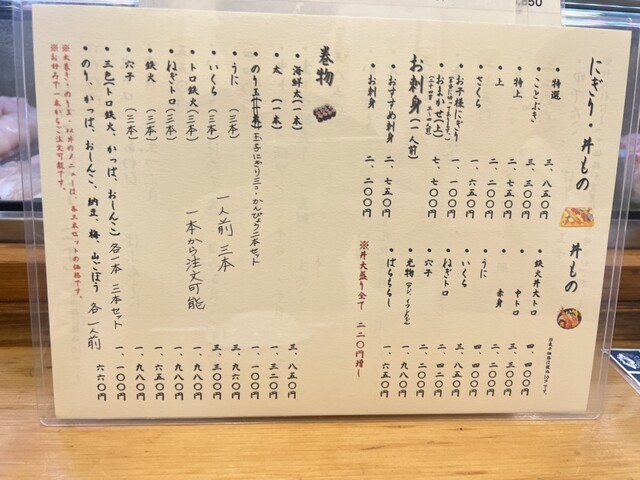 にぎり・丼もの
・特選 三、八五〇円
・ことぶき 三、三〇〇円
・特上 二、七五〇円
・上 二、二〇〇円
・さくら 一、六五〇円
・お子様にぎり 一、一〇〇円
・おまかせ(上) 七、七〇〇円
お刺身(一人前)
・おすすめ刺身 二、七五〇円
・お刺身 二、二〇〇円
丼もの
・鉄火丼大トロ 四、四〇〇円
・中トロ 三、三〇〇円
・赤身
・うに 四、四〇〇円
・いくら 三、八五〇円
・ねぎトロ 二、四二〇円
・穴子 二、二〇〇円
・光物
・ばらちらし 一、六五〇円
※丼大盛り全て 二二〇円増し
巻物
・海鮮太(一本) 三、八五〇円
・太(一本) 一、三二〇円
・のり玉 玉子にぎり三コ・かんぴょう二本セット 一、一〇〇円
・うに(三本) 三、九六〇円
・いくら(三本) 三、三〇〇円
・トロ鉄火(三本) 一、九八〇円
・ねぎトロ(三本) 一、九八〇円
・鉄火(三本)
・穴子(三本) 一、九八〇円
・三色(トロ鉄火、かっぱ、おしんこ)各一本 三本セット 一、一〇〇円
・のり、かっぱ、おしんこ、納豆、梅、山ごぼう 各一人前 六六〇円
一人前 三本
一本から注文可能
※太巻き・のり玉・以外のメニューは、各三本セットの価格です。
※お好みで一本からご注文可能です。